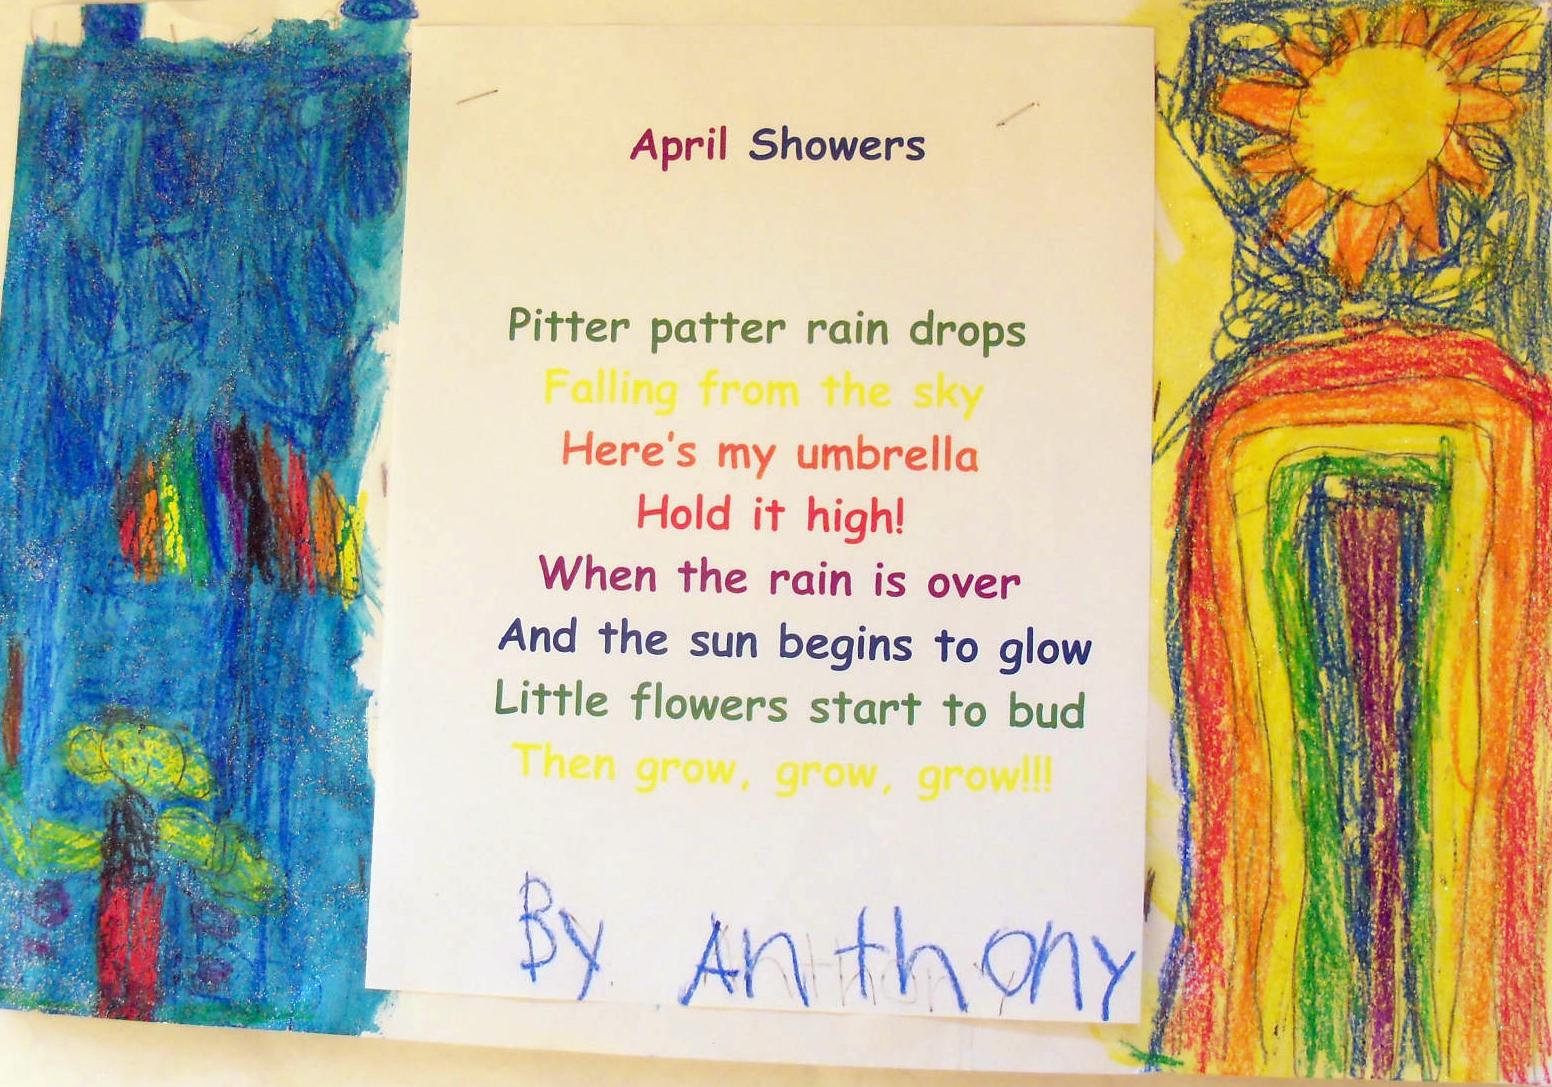 April Showers
Pitter patter rain drops
Falling from the sky
Here's my umbrella
Hold it high!
When the rain is over
And the sun begins to glow
Little flowers start to bud
Then grow, grow, grow!!!
By Anthony